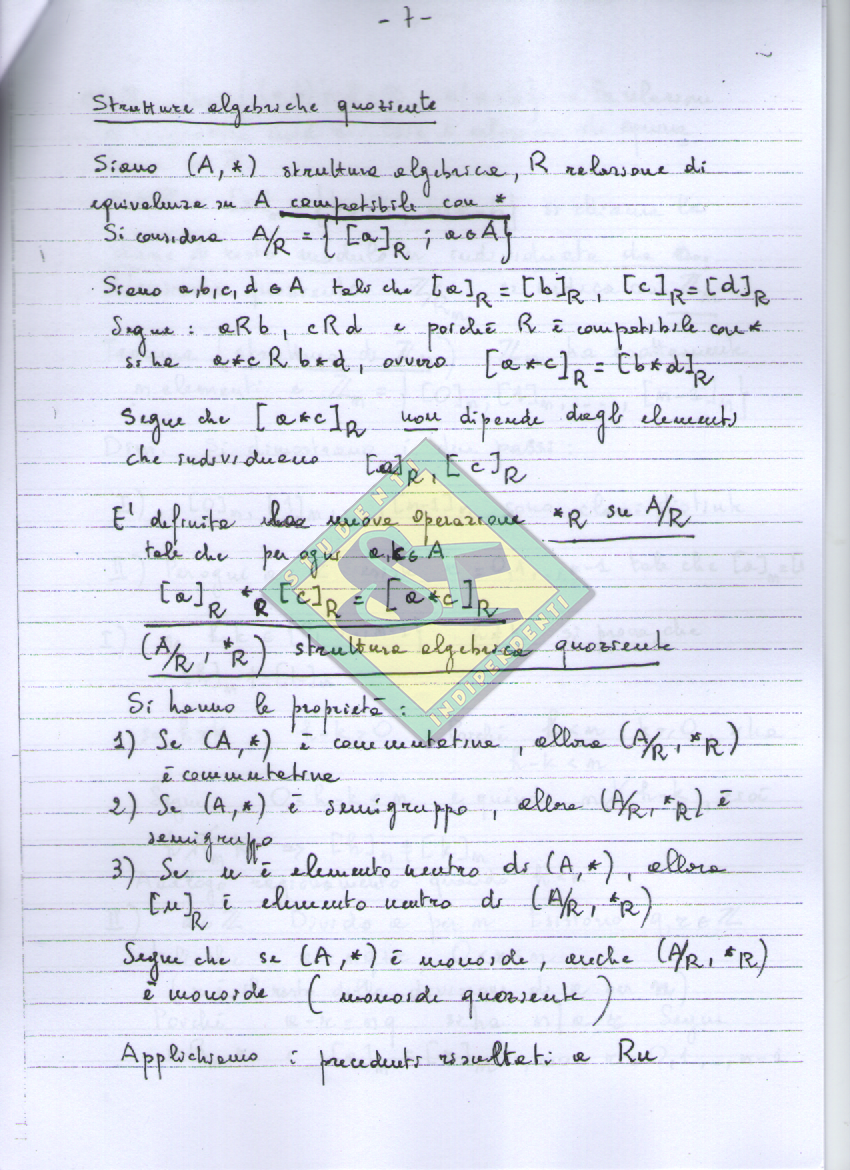 - 7 -
Strutture algebriche quoziente
Siano (A, *) struttura algebrica, R relazione di
equivalenza su A compatibile con *
Si considera A/R = { [a]R ; a ∈ A }
Siano a,b,c,d ∈ A tali che [a]R = [b]R , [c]R = [d]R
Segue : aRb , cRd e poichè R è compatibile con *
si ha a*c R b*d , ovvero [a*c]R = [b*d]R
Segue che [a*c]R non dipende dagli elementi
che individuano [a]R , [c]R
E' definita nuova operazione *R su A/R
tale che per ogni a,c ∈ A
[a]R *R [c]R = [a*c]R
(A/R , *R) struttura algebrica quoziente
STUDENTI
SI
INDIPENDENTI
Si hanno le proprietà :
1) Se (A,*) è commutativa , allora (A/R , *R)
è commutativa
2) Se (A,*) è semigruppo , allora (A/R , *R) è
semigruppo
3) Se u è elemento neutro di (A,*) , allora
[u]R è elemento neutro di (A/R , *R)
Segue che se (A,*) è monoide, anche (A/R , *R)
è monoide ( monoide quoziente )
Applichiamo i precedenti risultati a Rn